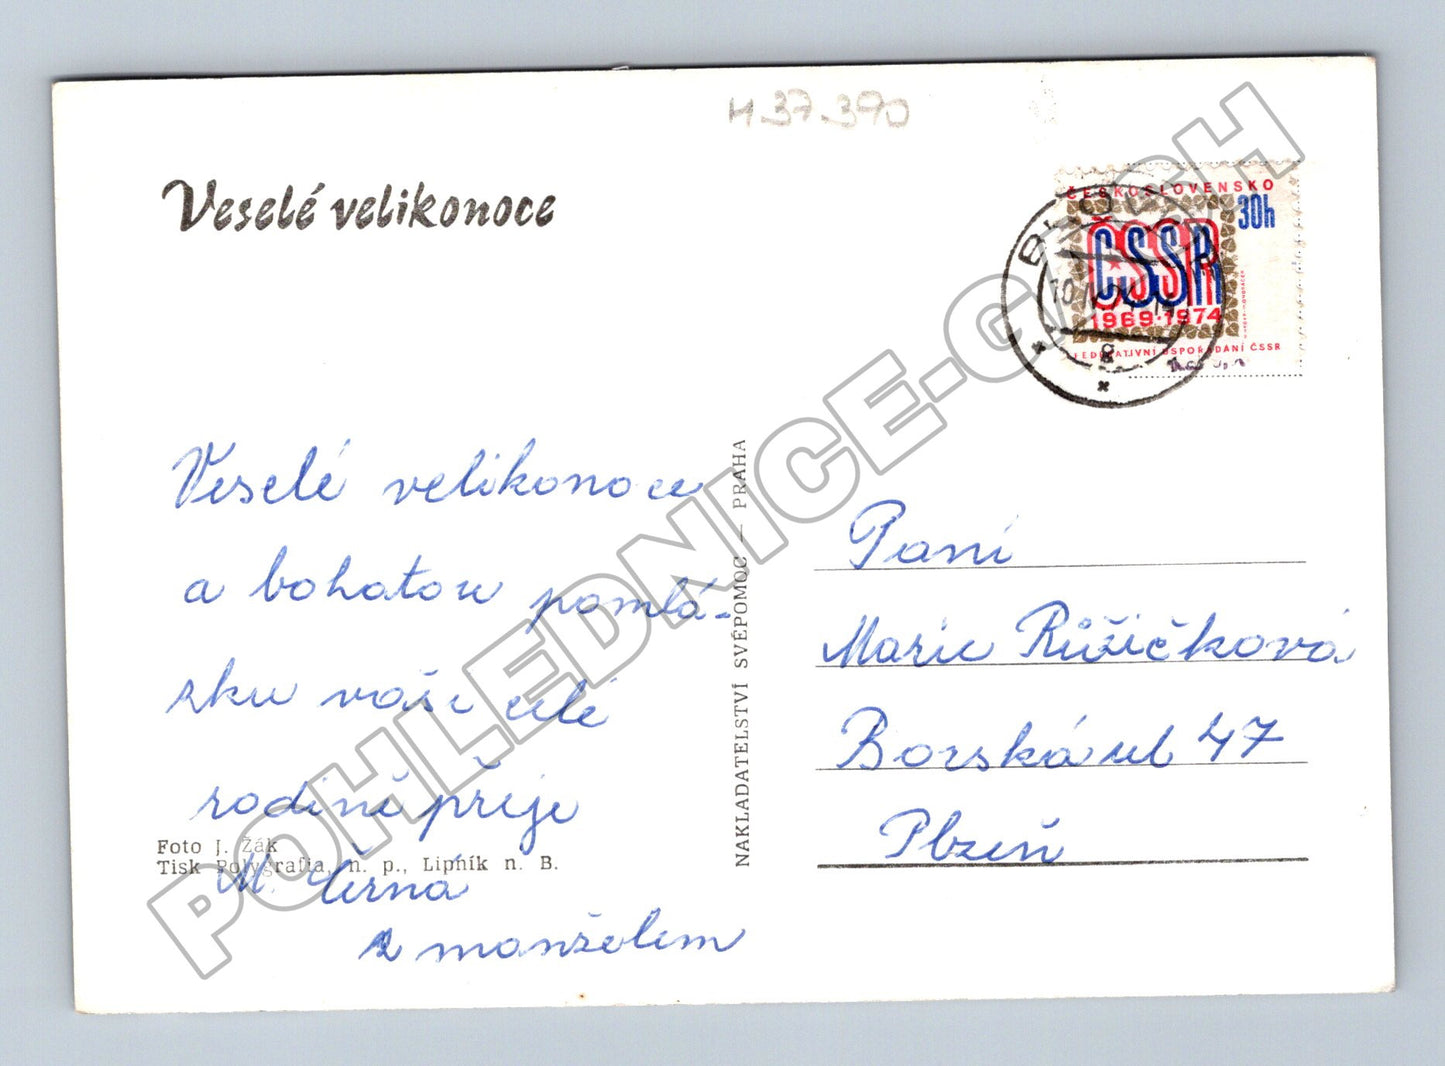 H 37.390
Veselé velikonoce
ČESKOSLOVENSKO
30h
ČSSR
1969·1974
FEDERATIVNÍ USPOŘÁDÁNÍ ČSSR
Veselé velikonoce
a bohatou pomlá-
zku vaší celé
rodině přeje
M. Černá
z manželem
Foto J. Žák
Tisk Polygrafia, n. p., Lipník n. B.
NAKLADATELSTVÍ SVÉPOMOC — PRAHA
Paní
Marie Růžičková
Borská ul 47
Plzeň
POHLEDNICE-GALASH